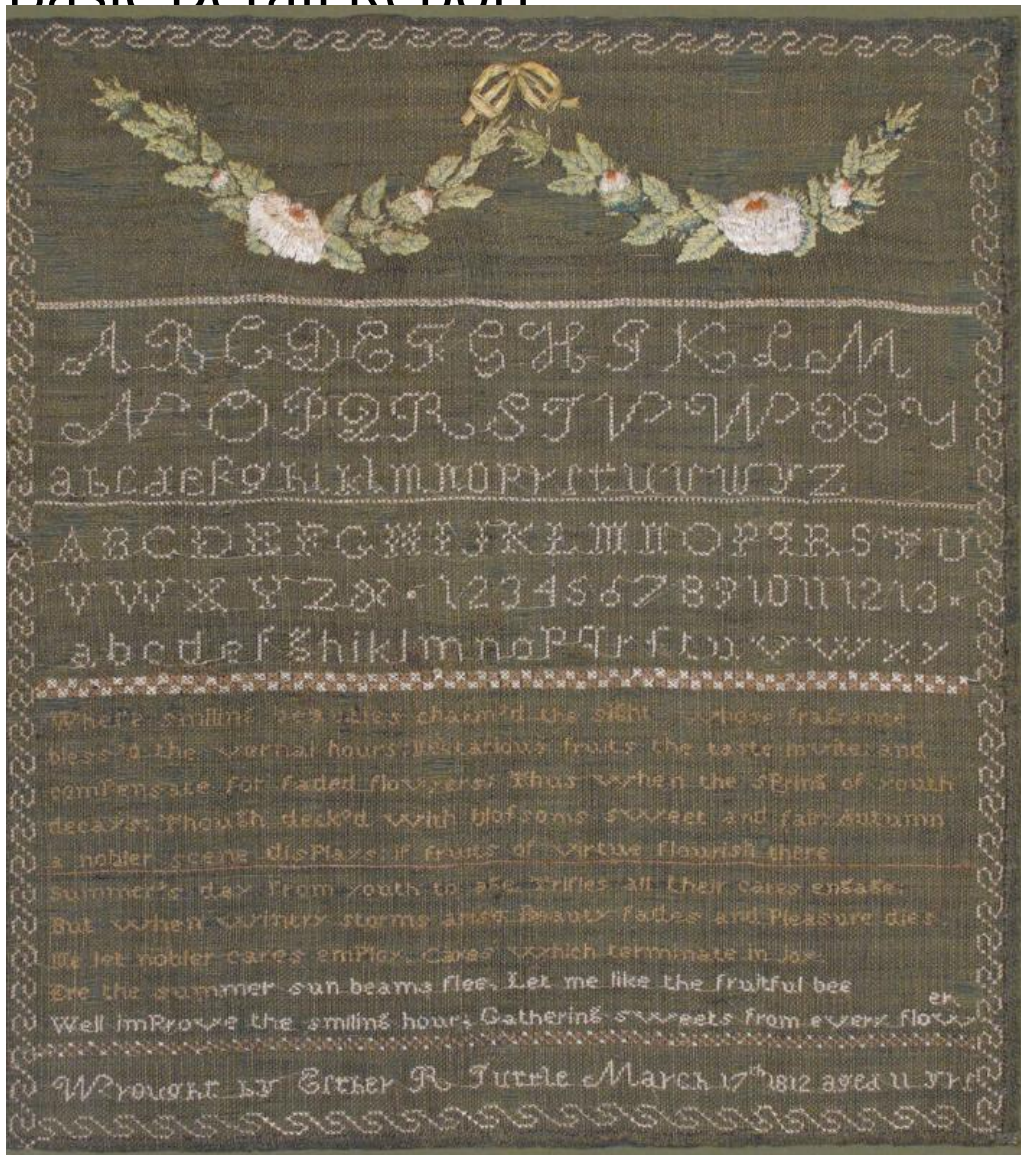 Basic Detail Report
A B C D E F G H I K L M
N O P Q R S T V W X Y
a b c d e f g h i k l m n o p r ſ t u v w y z
A B C D E F G H I J K L M N O P Q R S T U
V W X Y Z & . 1 2 3 4 5 6 7 8 9 10 11 12 13 .
a b c d e f g h i k l m n o p q r ſ t u v w x y
Where smiling beauties charm'd the sight whose fragrance
bless'd the vernal hours; Nectarious fruits the taste invite and
compensate for faded flowers: Thus when the spring of youth
decays; Though deck'd with bloſsoms sweet and fair Autumn
a nobler scene displays if fruits of virtue flourish there
Summer's day From youth to age Trifles all their cares engage:
But when wintry storms arise Beauty fades and Pleasure dies
me let nobler cares employ. Cares which terminate in Joy
Ere the summer sun beams flee. Let me like the fruitful bee
Well improve the smiling hour, Gathering sweets from every flower.
Wrought by Esther R Tuttle March 17th 1812 aged 11 yrs